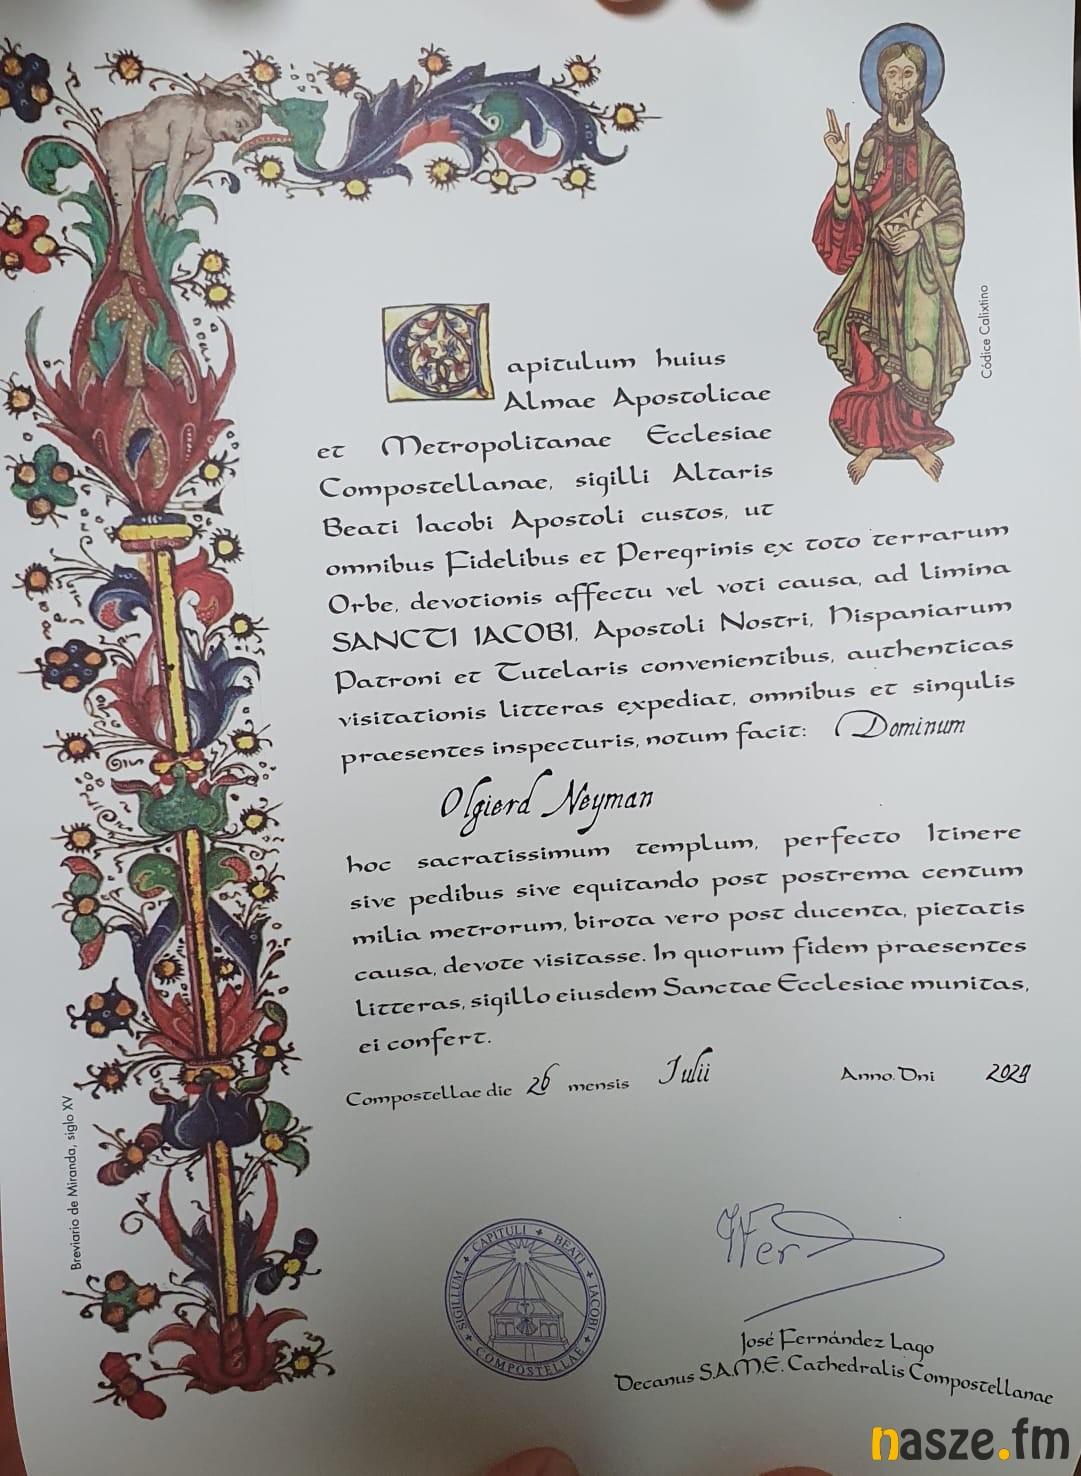 Códice Calixtino
Capitulum huius
Almae Apostolicae
et Metropolitanae Ecclesiae
Compostellanae, sigilli Altaris
Beati Iacobi Apostoli custos, ut
omnibus Fidelibus et Peregrinis ex toto terrarum
Orbe, devotionis affectu vel voti causa, ad limina
SANCTI IACOBI, Apostoli Nostri, Hispaniarum
Patroni et Tutelaris convenientibus, authenticas
visitationis litteras expediat, omnibus et singulis
praesentes inspecturis, notum facit: Dominum
Olgierd Neyman
hoc sacratissimum templum, perfecto Itinere
sive pedibus sive equitando post postrema centum
milia metrorum, birota vero post ducenta, pietatis
causa, devote visitasse. In quorum fidem praesentes
litteras, sigillo eiusdem Sanctae Ecclesiae munitas,
ei confert.
Compostellae die 26 mensis Iulii Anno Dni 2024
Breviario de Miranda, siglo XV
SIGILLUM + CAPITULI + BEATI + IACOBI + COMPOSTELLAE +
José Fernández Lago
Decanus S.A.M.E. Cathedralis Compostellanae
nasze.fm